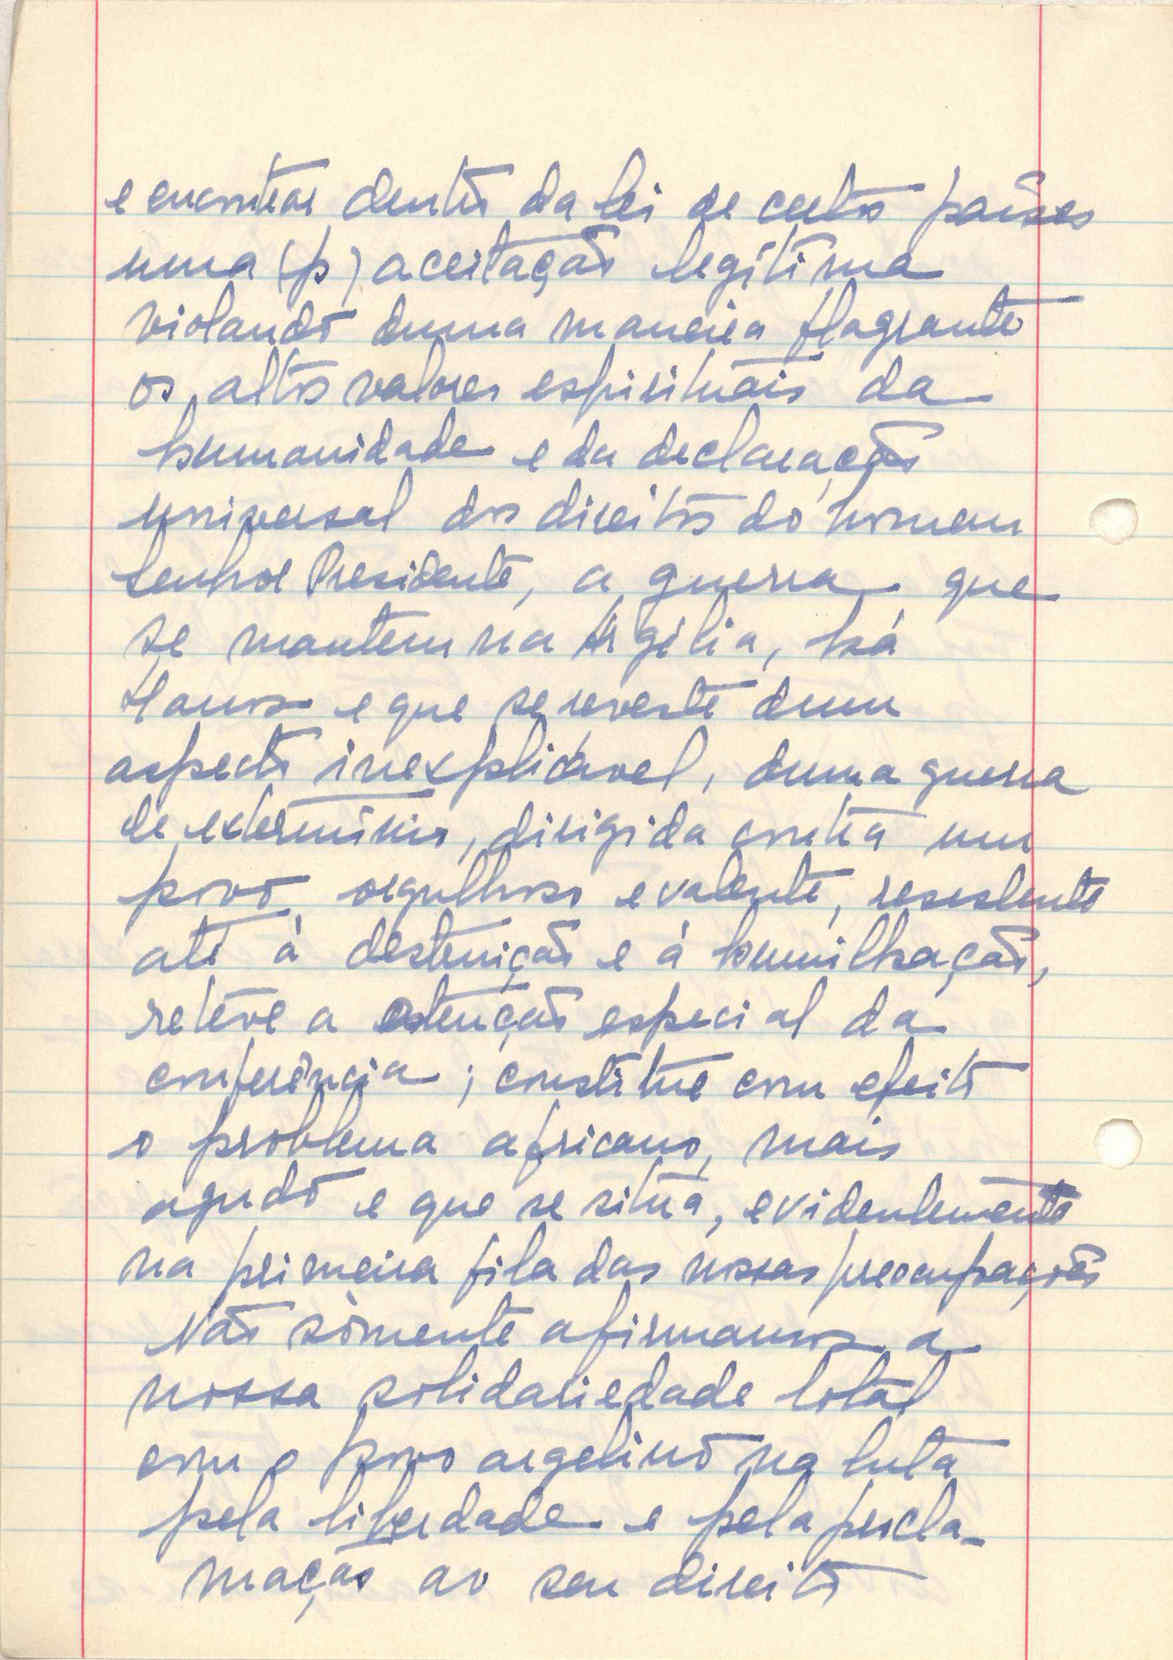 e encontrar dentro da lei de certos países
uma (p) aceitação legítima
violando duma maneira flagrante
os altos valores espirituais da
humanidade e da declaração
universal dos direitos do homem
Senhor Presidente, a guerra que
se mantem na Argélia, há
4 anos e que se reveste dum
aspecto inexplicável, duma guerra
de extermínio, dirigida contra um
povo orgulhoso e valente, resistente
até à destruição e á humilhação,
retève a atenção especial da
conferência; constitue com efeito
o problema africano, mais
agudo e que se situa, evidentemente
na primeira fila das nossas preocupações
Não sòmente afirmamos a
nossa solidariedade total
com o povo argelino na luta
pela liberdade e pela procla-
mação ao seu direito